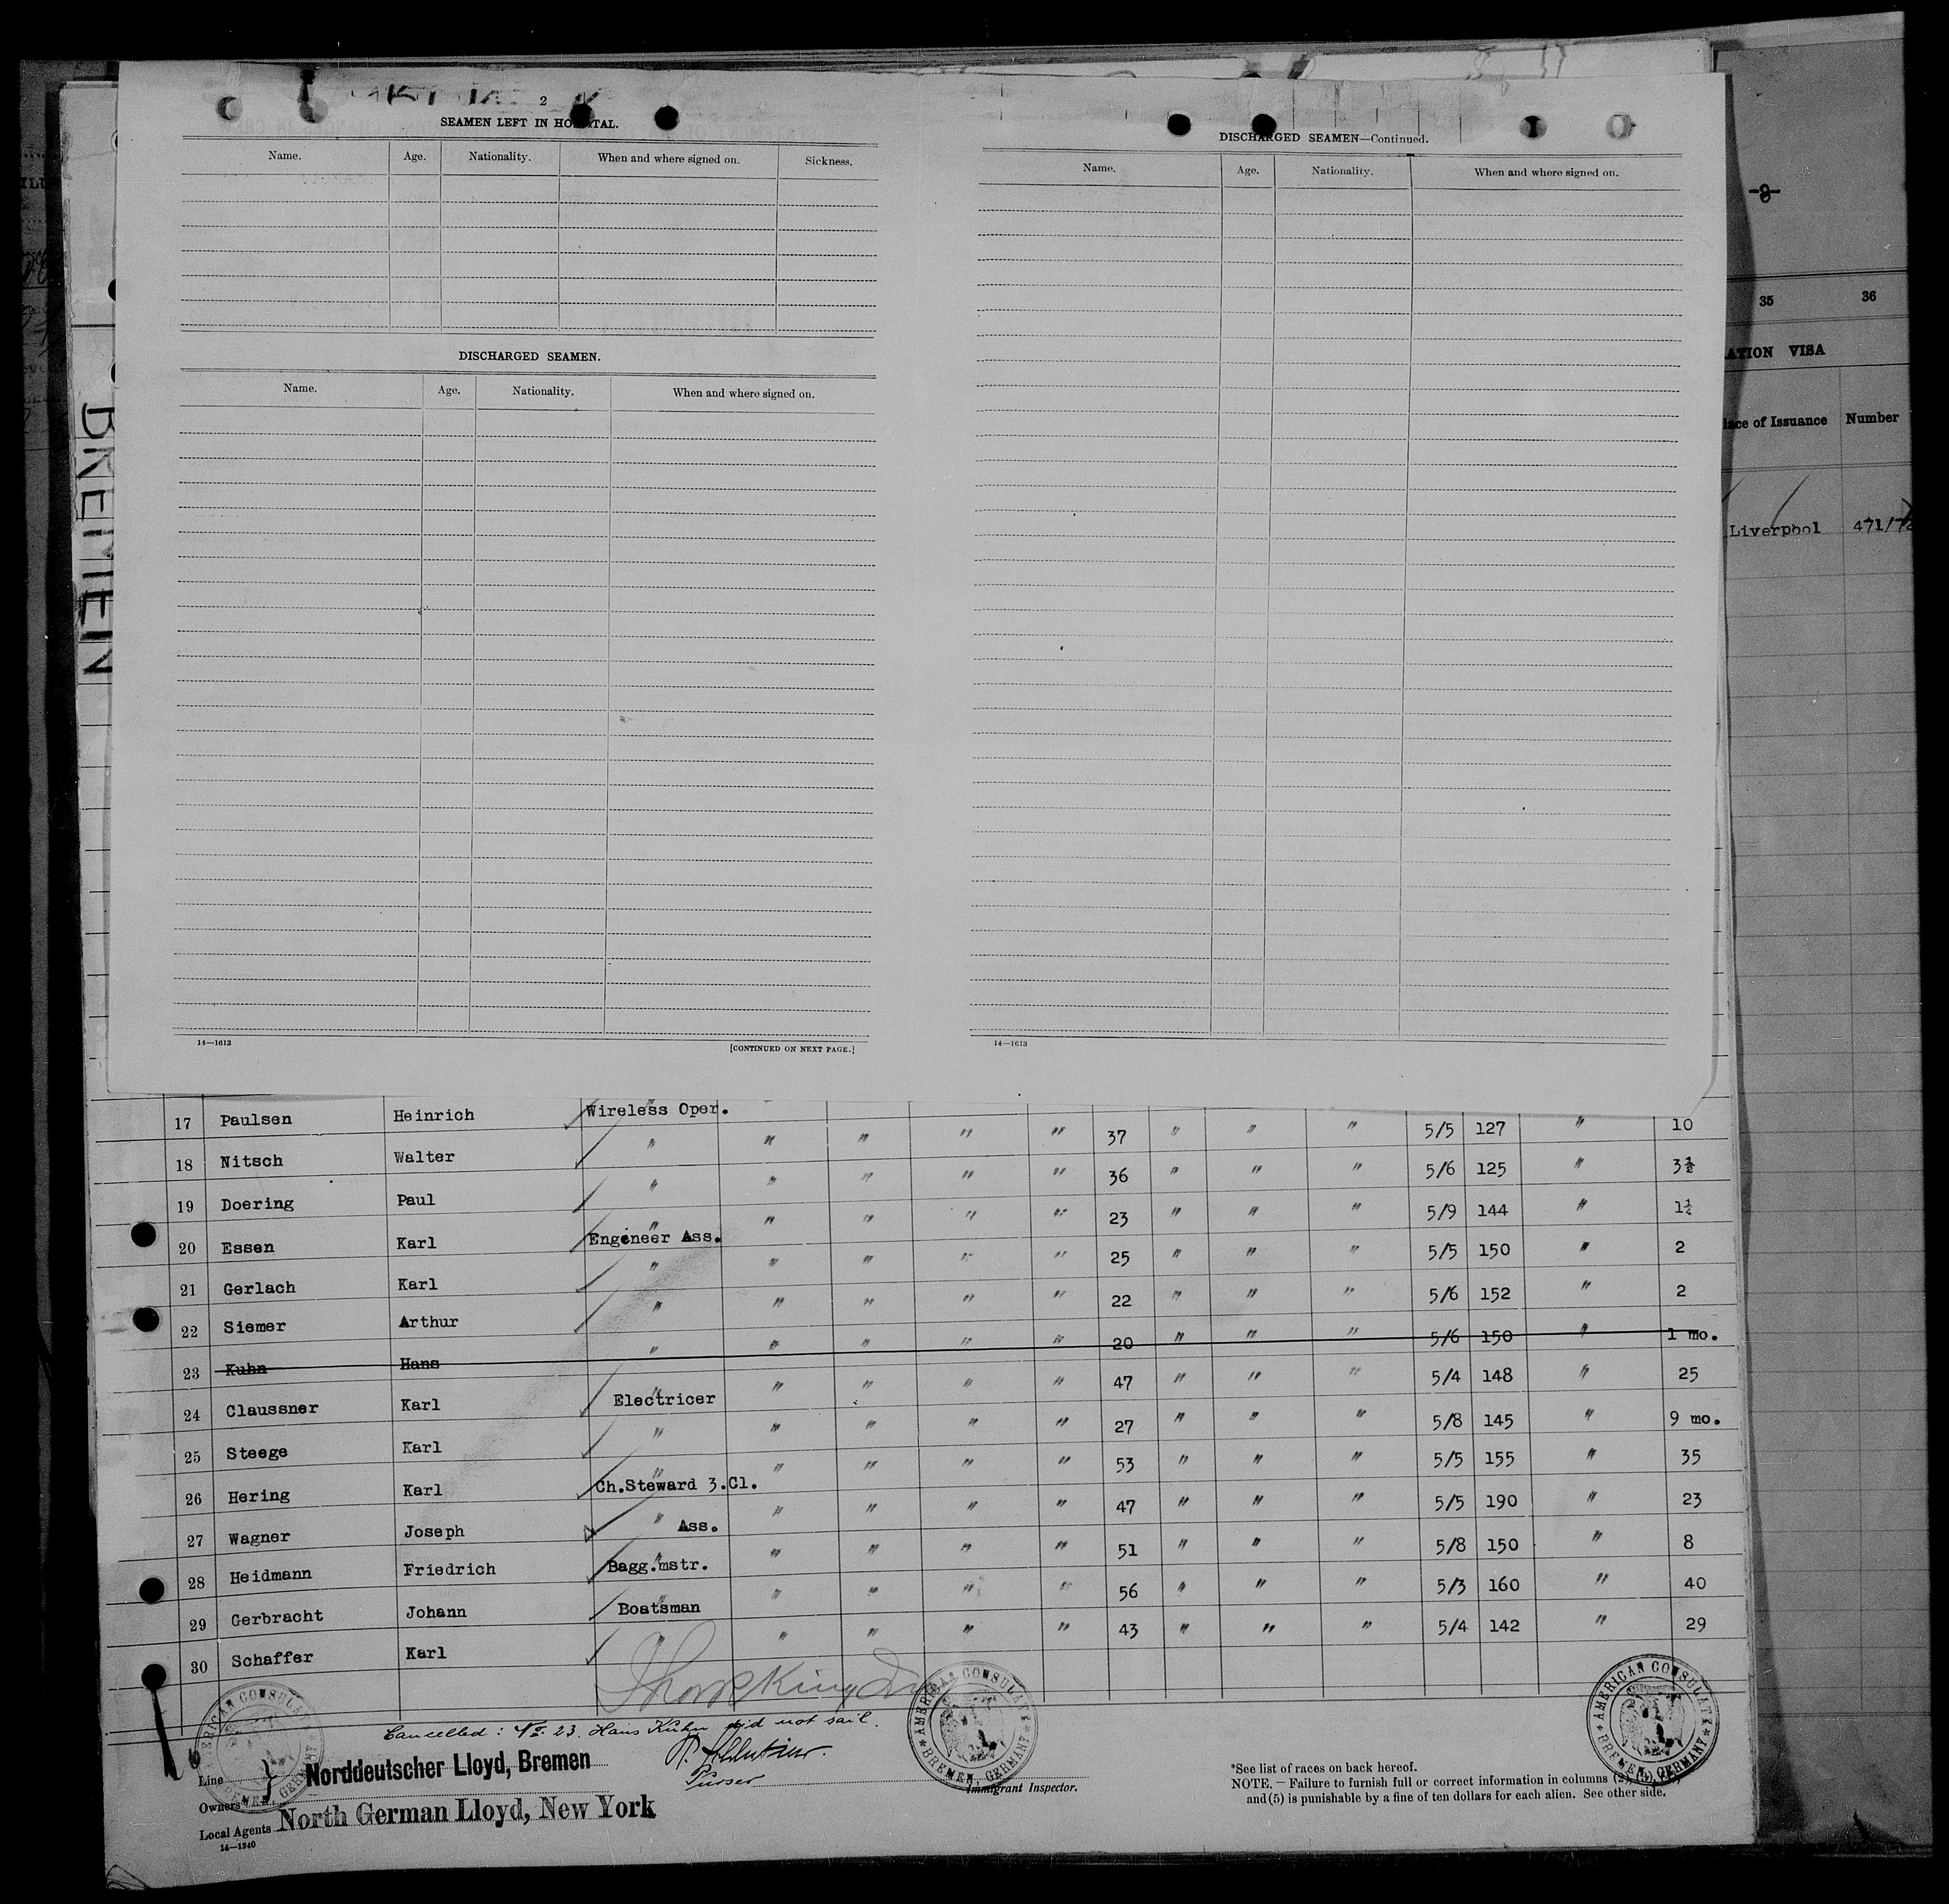 2
SEAMEN LEFT IN HOSPITAL.
Name. Age. Nationality. When and where signed on. Sickness.
DISCHARGED SEAMEN.
Name. Age. Nationality. When and where signed on.
14—1613 [CONTINUED ON NEXT PAGE.]
DISCHARGED SEAMEN—Continued.
Name. Age. Nationality. When and where signed on.
14—1613
8
35 36
ATION VISA
lace of Issuance Number
Liverpool 471/72
BREMEN
17 Paulsen Heinrich Wireless Oper. " " " " 37 " " " 5/5 127 " 10
18 Nitsch Walter " " " " " 36 " " " 5/6 125 " 3½
19 Doering Paul " " " " " 23 " " " 5/9 144 " 1½
20 Essen Karl Engeneer Ass. " " " " 25 " " " 5/5 150 " 2
21 Gerlach Karl " " " " " 22 " " " 5/6 152 " 2
22 Siemer Arthur " " " " " 20 " " " 5/6 150 " 1 mo.
23 Kuhn Hans " " " " " 47 " " " 5/4 148 " 25
24 Claussner Karl Electricer " " " " 27 " " " 5/8 145 " 9 mo.
25 Steege Karl " " " " " 53 " " " 5/5 155 " 35
26 Hering Karl Ch.Steward 3.Cl. " " " " 47 " " " 5/5 190 " 23
27 Wagner Joseph " Ass. " " " " 51 " " " 5/8 150 " 8
28 Heidmann Friedrich Bagg.mstr. " " " " 56 " " " 5/3 160 " 40
29 Gerbracht Johann Boatsman " " " " 43 " " " 5/4 142 " 29
30 Schaffer Karl "
Cancelled: No. 23. Hans Kuhn did not sail.
Purser
Line
Owners
Norddeutscher Lloyd, Bremen
Local Agents North German Lloyd, New York
14—1240
Immigrant Inspector.
AMERICAN CONSULATE
BREMEN, GERMANY
AMERICAN CONSULATE
BREMEN, GERMANY
AMERICAN CONSULATE
BREMEN, GERMANY
*See list of races on back hereof.
NOTE. — Failure to furnish full or correct information in columns (2),
and (5) is punishable by a fine of ten dollars for each alien. See other side.